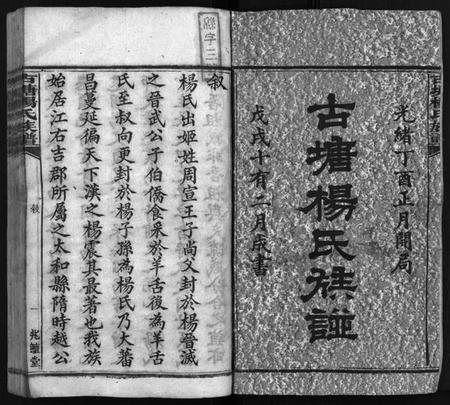 光緒丁酉正月開局
古塘楊氏族譜
戊戌十有二月成書
叙
楊氏出姬姓周宣王子尚父封於楊晉滅
之晉武公子伯僑食采於羊舌後為羊舌
氏至叔向更封於楊子孫為楊氏乃大蕃
昌蔓延徧天下漢之楊震其最著也我族
始居江右吉郡所屬之太和縣隋時越公
古塘楊氏族譜
叙
一